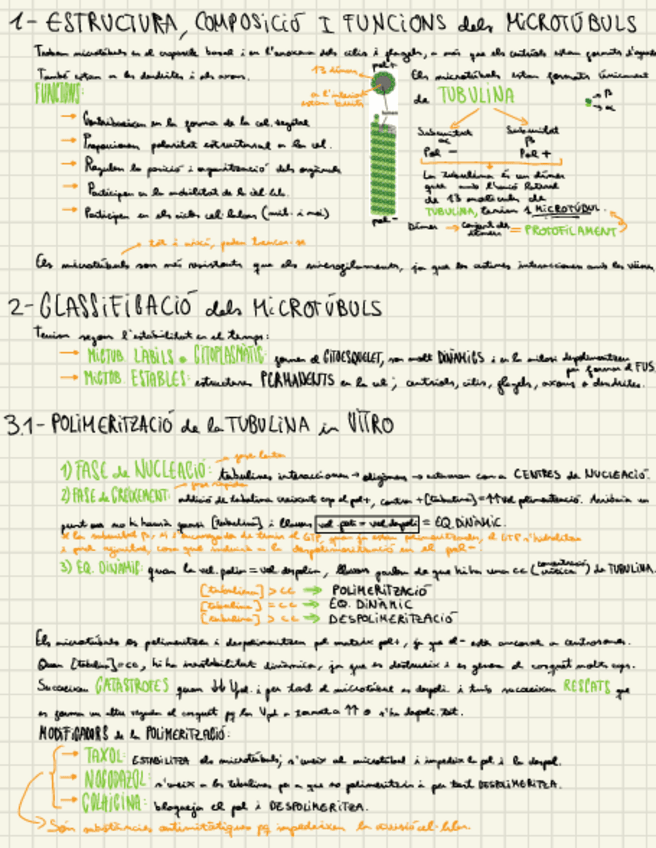 1- ESTRUCTURA, COMPOSICIÓ I FUNCIONS dels MICROTÚBULS
Trobem microtúbuls en el citoesquelet basal i en l'axonema dels cilis i flagels, a més que els centríols estan formats d'aquests
També estan a les dendrites i als axons.
FUNCIONS:
→ Contribueixen en la forma de la cel. vegetal
→ Proporcionen polaritat estructural a la cel.
→ Regulen la posició i organització dels orgànuls
→ Participen en la mobilitat de la cèl·lula.
→ Participen en els cicles cel·lulars (mit. i mei)
13 dímers
a l'interior estan buits
pol+
pol-
Els microtúbuls estan formats únicament
de TUBULINA
β
α
Subunitat α
Pol -
Subunitat β
Pol +
La tubulina és un dímer
que amb l'unió lateral
de 13 molècules de
TUBULINA, tenim 1 MICROTÚBUL.
Dímer → conjunt de dímers = PROTOFILAMENT
Els microtúbuls son més resistents que els microfilaments, ja que les interaccions amb les
2- CLASSIFICACIÓ dels MICROTÚBULS
Tenim segons l'estabilitat en el temps:
→ MICTUB. LABILS o CITOPLASMÀTIC: formen el CITOESQUELET, son molt DINÀMICS i en la mitosi despolimeritzen per formar el FUS
→ MICTUB. ESTABLES: estructures PERMANENTS en la cel; centríols, cilis, flagels, axons o dendrites.
3.1- POLIMERITZACIÓ de la TUBULINA in VITRO
fase lenta
1) FASE de NUCLEACIÓ: tubulines interaccionen → oligòmers → actuaran com a CENTRES de NUCLEACIÓ.
fase ràpida
2) FASE de CREIXEMENT: addició de tubulina creixent cap al pol+, contra +[tubulina]=↑↑vel polimerització. Arribarà un
punt on no hi haurà quasi [tubulina] i llavors vel. poli = vel. despoli = EQ. DINÀMIC.
3) EQ. DINÀMIC: quan la vel. polim = vel despolim, llavors parlem de que hi ha una cc (concentració crítica) de TUBULINA.
[tubulina] > cc → POLIMERITZACIÓ
[tubulina] = cc → EQ. DINÀMIC
[tubulina] > cc → DESPOLIMERITZACIÓ
Els microtúbuls es polimeritzen i despolimeritzen pel mateix pol+, ja que el - està ancorat a centrosomes.
Quan [tubulina]=cc, hi ha inestabilitat dinàmica, ja que es destrueix i es genera el casquet molts cops.
Succeeixen CATASTROFES quan ↓↓ Vpol. i per tant el microtúbul es despoli i també succeeixen RESCATS que
es forma un altre vegada el casquet pq la Vpol a tornat a ↑↑ o s'ha despoli. tot.
MODIFICADORS de la POLIMERITZACIÓ:
→ TAXOL: ESTABILITZA els microtúbuls; s'uneix al microtúbul i impedeix la pol i la despol.
→ NOCODAZOL: s'uneix a les tubulines, pq a que no polimeritzin i per tant DESPOLIMERITZA.
→ COLHICINA: bloqueja el pol i DESPOLIMERITZA.
Són substàncies antimitòtiques pq impedeixen la divisió cel·lular.